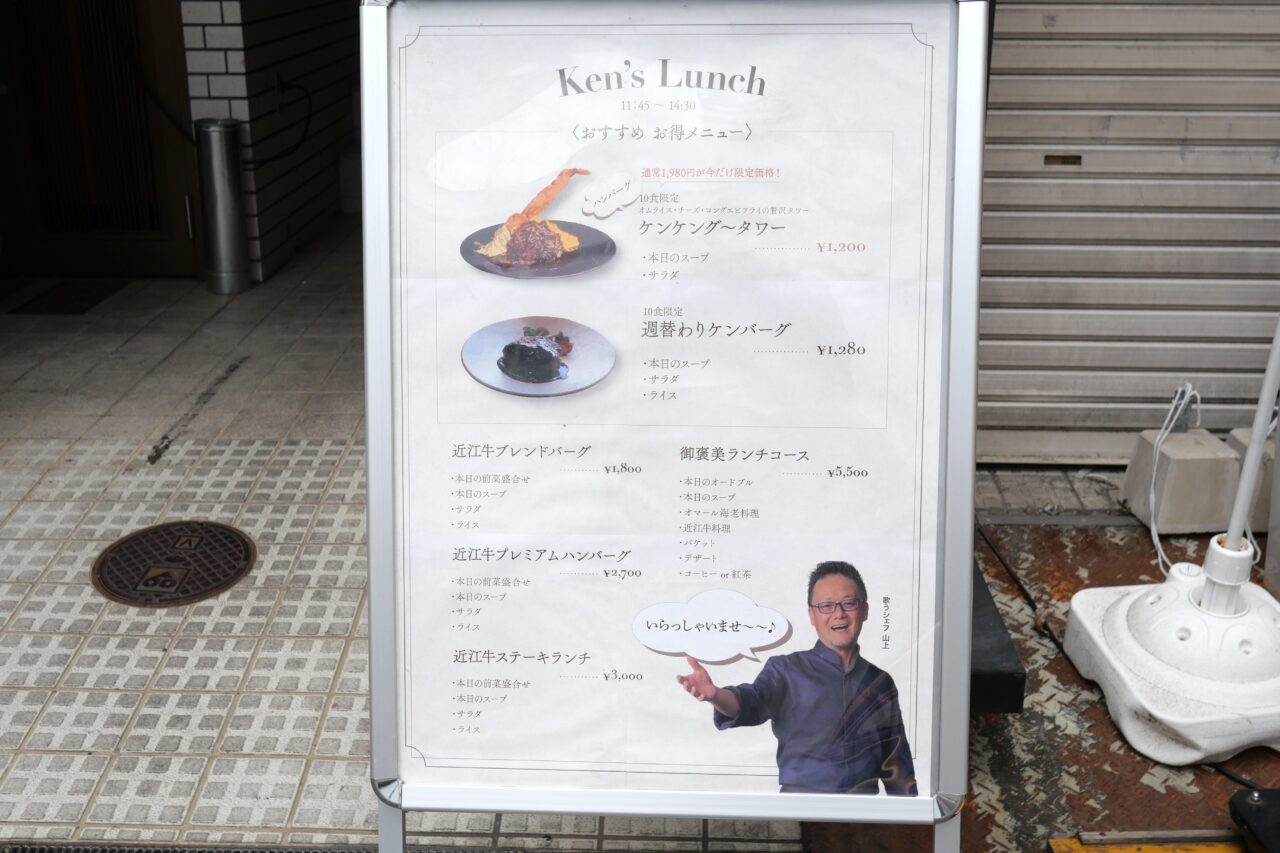 Ken's Lunch
11:45 ～ 14:30
〈おすすめ お得メニュー〉
通常1,980円が今だけ限定価格！
ハンバーグ
10食限定
オムライス・チーズ・ロングエビフライの贅沢タワー
ケンケング～タワー
¥1,200
・本日のスープ
・サラダ
10食限定
週替わりケンバーグ
¥1,280
・本日のスープ
・サラダ
・ライス
近江牛ブレンドバーグ
¥1,800
・本日の前菜盛合せ
・本日のスープ
・サラダ
・ライス
近江牛プレミアムハンバーグ
¥2,700
・本日の前菜盛合せ
・本日のスープ
・サラダ
・ライス
近江牛ステーキランチ
¥3,000
・本日の前菜盛合せ
・本日のスープ
・サラダ
・ライス
御褒美ランチコース
¥5,500
・本日のオードブル
・本日のスープ
・オマール海老料理
・近江牛料理
・バケット
・デザート
・コーヒー or 紅茶
いらっしゃいませ～～♪
歌うシェフ 山上